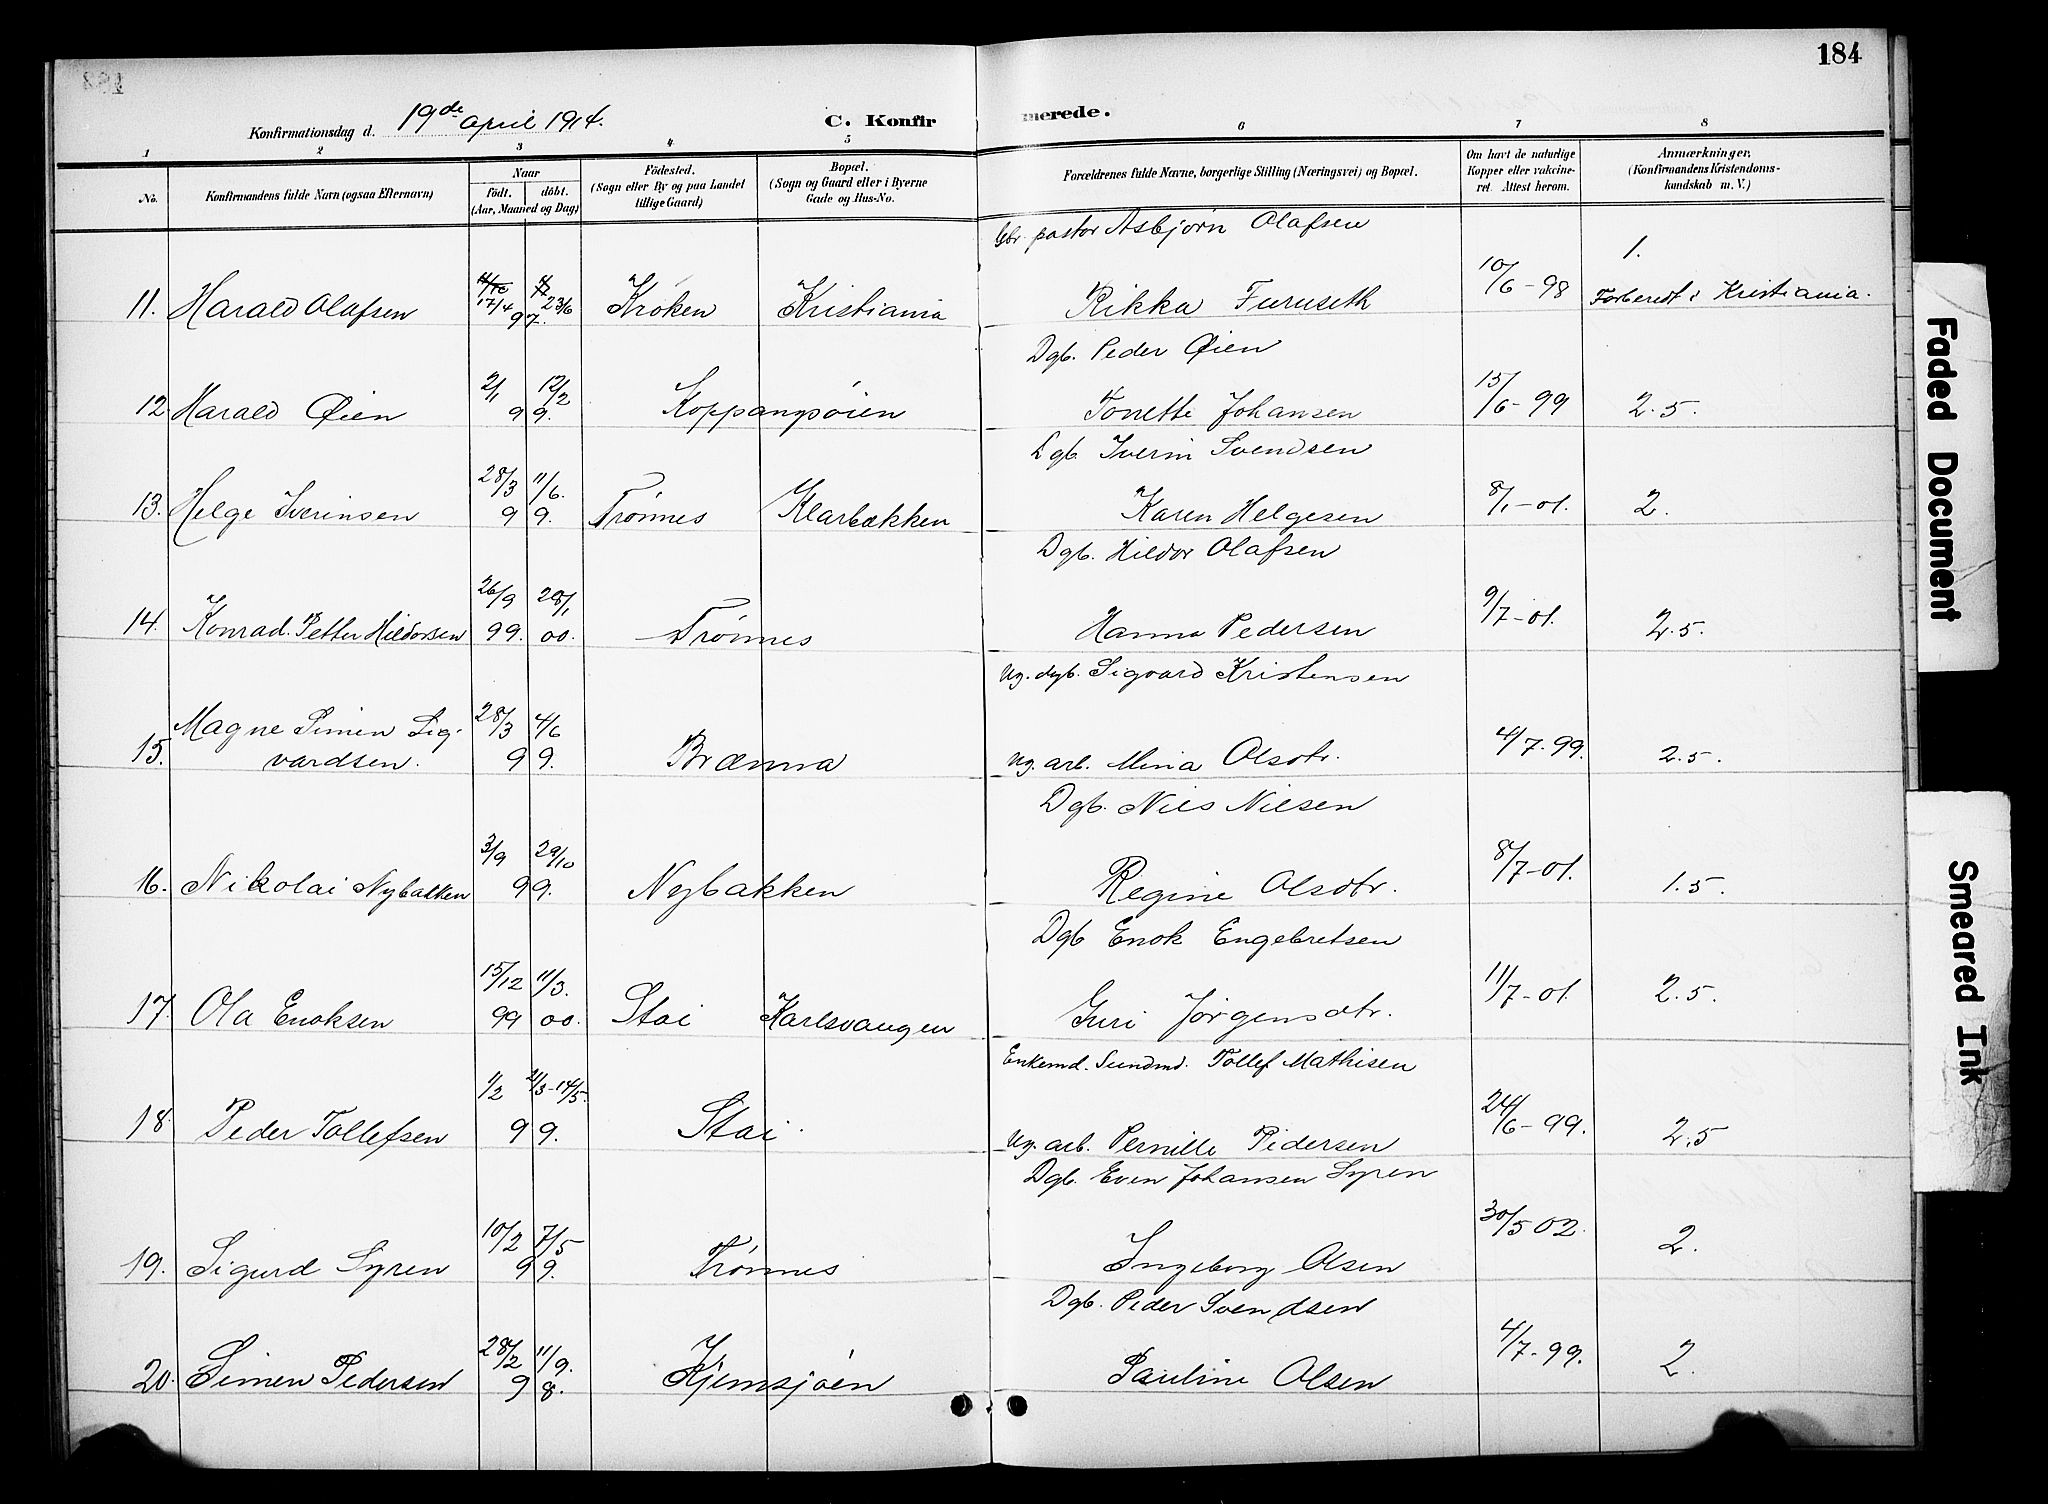 184
Konfirmationsdag d. 19de april 1914. C. Konfirmerede.
1 2 3 4 5 6 7 8
No. Konfirmandens fulde Navn (ogsaa Efternavn) Naar født. døbt. (Aar, Maaned og Dag) Födested. (Sogn eller By og paa Landet tillige Gaard) Bopæl. (Sogn og Gaard eller i Byerne Gade og Hus-No. Forældrenes fulde Navne, borgerlige Stilling (Næringsvei) og Bopæl. Om havt de naturlige Kopper eller vakcineret. Attest herom. Anmærkninger. (Konfirmandens Kristendomskundskab m. V.)
pastor Asbjörn Olafsen
11. Harald Olafsen 17/4 23/6 97. Kroken Kristiania Rikka Furuseth 10/6-98 1. Forberedt i Kristiania.
Dgb. Peder Øien
12 Harald Øien 2/1 12/2 99. Koppangsöien Tonette Johansen 15/6-99 2.5.
Dgb. Iverin Svendsen
13. Helge Iverinsen 28/3 11/6. 99. Trönnes Klarbækken Karen Helgesen 8/1-01. 2.
Dgb. Hildor Olafsen
14. Konrad Petter Hildorsen 26/9 99. 28/1 00. Trönnes Hanna Pedersen 9/7-01. 2.5.
Ug. dgb. Sigvard Kristensen
15. Magne Simen Sigvardsen. 28/3 4/6 99. Brænna Ug. arb. Mina Olsdtr. 4/7-99. 2.5.
Dgb. Nils Nilsen
16. Nikolai Nybakken 3/9 29/10 99. Nybakken Regine Olsdtr. 8/7-01. 1.5.
Dgb Enok Engebretsen
17. Ola Enoksen 15/12 99 11/3. 00. Stai Karlsvangen Guri Jörgensdtr. 11/7-01. 2.5.
Enkemd. Sundmd. Tollef Mathisen
18. Peder Tollefsen 1/2 21/3-14/5. 99. Stai. Ug. arb. Pernille Pedersen 24/6-99. 2.5
Dgb. Even Johansen Syren
19. Sigurd Syren 10/2 7/5 99. Trönnes Ingeborg Olsen 30/5 02. 2.
Dgb. Peder Svendsen
20. Simen Pedersen 28/2 11/9. 98. Kjemsjöen Pauline Olsen 4/7-99. 2.
Faded Document
Smeared Ink